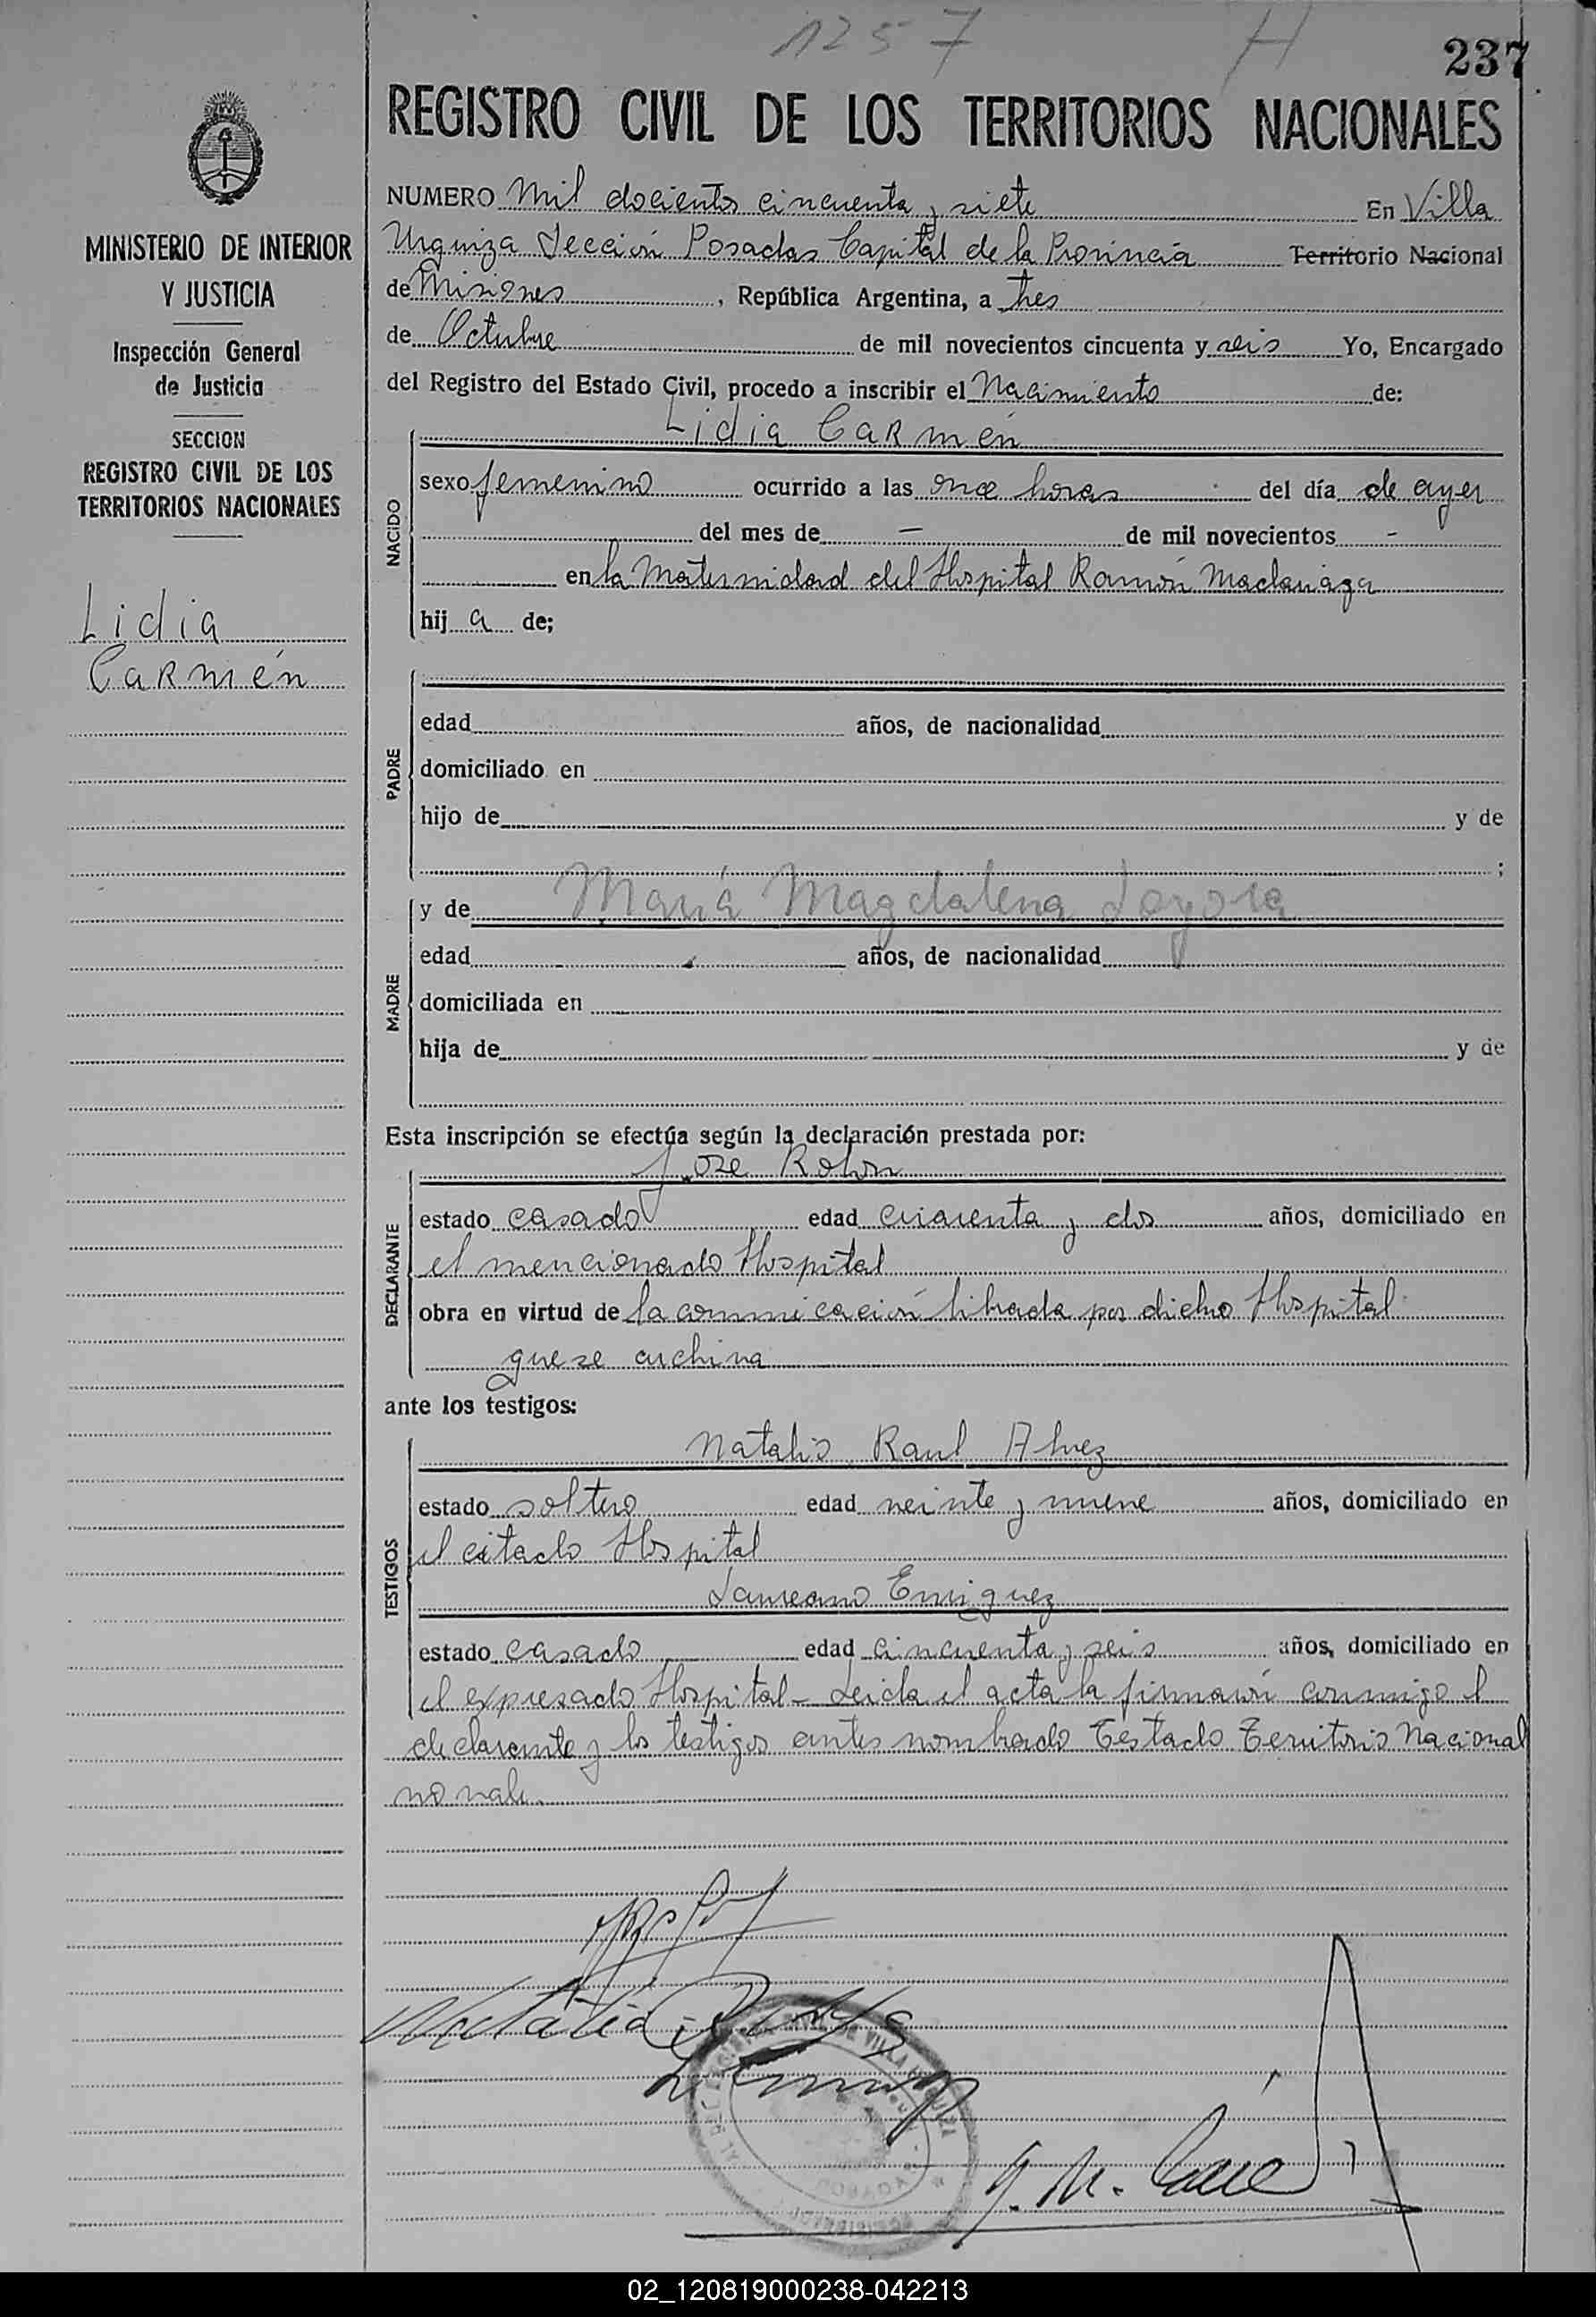 1257 H
237
REGISTRO CIVIL DE LOS TERRITORIOS NACIONALES
MINISTERIO DE INTERIOR
Y JUSTICIA
Inspección General
de Justicia
SECCION
REGISTRO CIVIL DE LOS
TERRITORIOS NACIONALES
Lidia
Carmén
NUMERO Mil docientos cincuenta y siete En Villa
Urquiza Sección Posadas Capital de la Provincia Territorio Nacional
de Misiones, República Argentina, a tres
de Octubre de mil novecientos cincuenta y seis Yo, Encargado
del Registro del Estado Civil, procedo a inscribir el Nacimiento de:
Lidia Carmén
NACIDO
sexo femenino ocurrido a las once horas del día de ayer
del mes de — de mil novecientos -
en la Maternidad del Hospital Ramón Madariaga
hij a de;
PADRE
edad años, de nacionalidad
domiciliado en
hijo de y de
;
y de María Magdalena Loyola
MADRE
edad años, de nacionalidad
domiciliada en
hija de y de
Esta inscripción se efectúa según la declaración prestada por:
Jose Rolon
DECLARANTE
estado casado edad cuarenta y dos años, domiciliado en
el mencionado Hospital
obra en virtud de la comunicación librada por dicho Hospital
que se archiva
ante los testigos:
Natalio Raul Alvez
TESTIGOS
estado soltero edad veinte y nueve años, domiciliado en
el citado Hospital
Laureano Enriquez
estado casado edad cincuenta y seis años, domiciliado en
el expresado Hospital - Leida el acta la firmarón conmigo el
declarante y los testigos antes nombrado Testado Territorio Nacional
no vale.
02_120819000238-042213